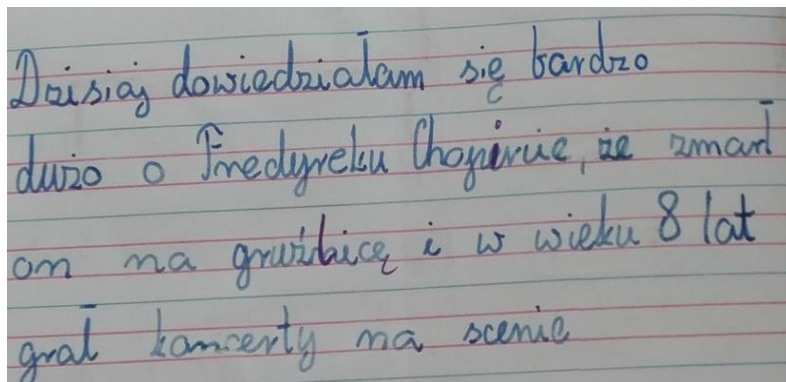 Dzisiaj dowiedziałam się bardzo
dużo o Fredyreku Chopinie, że zmarł
on na gruźlicę i w wieku 8 lat
grał koncerty na scenie